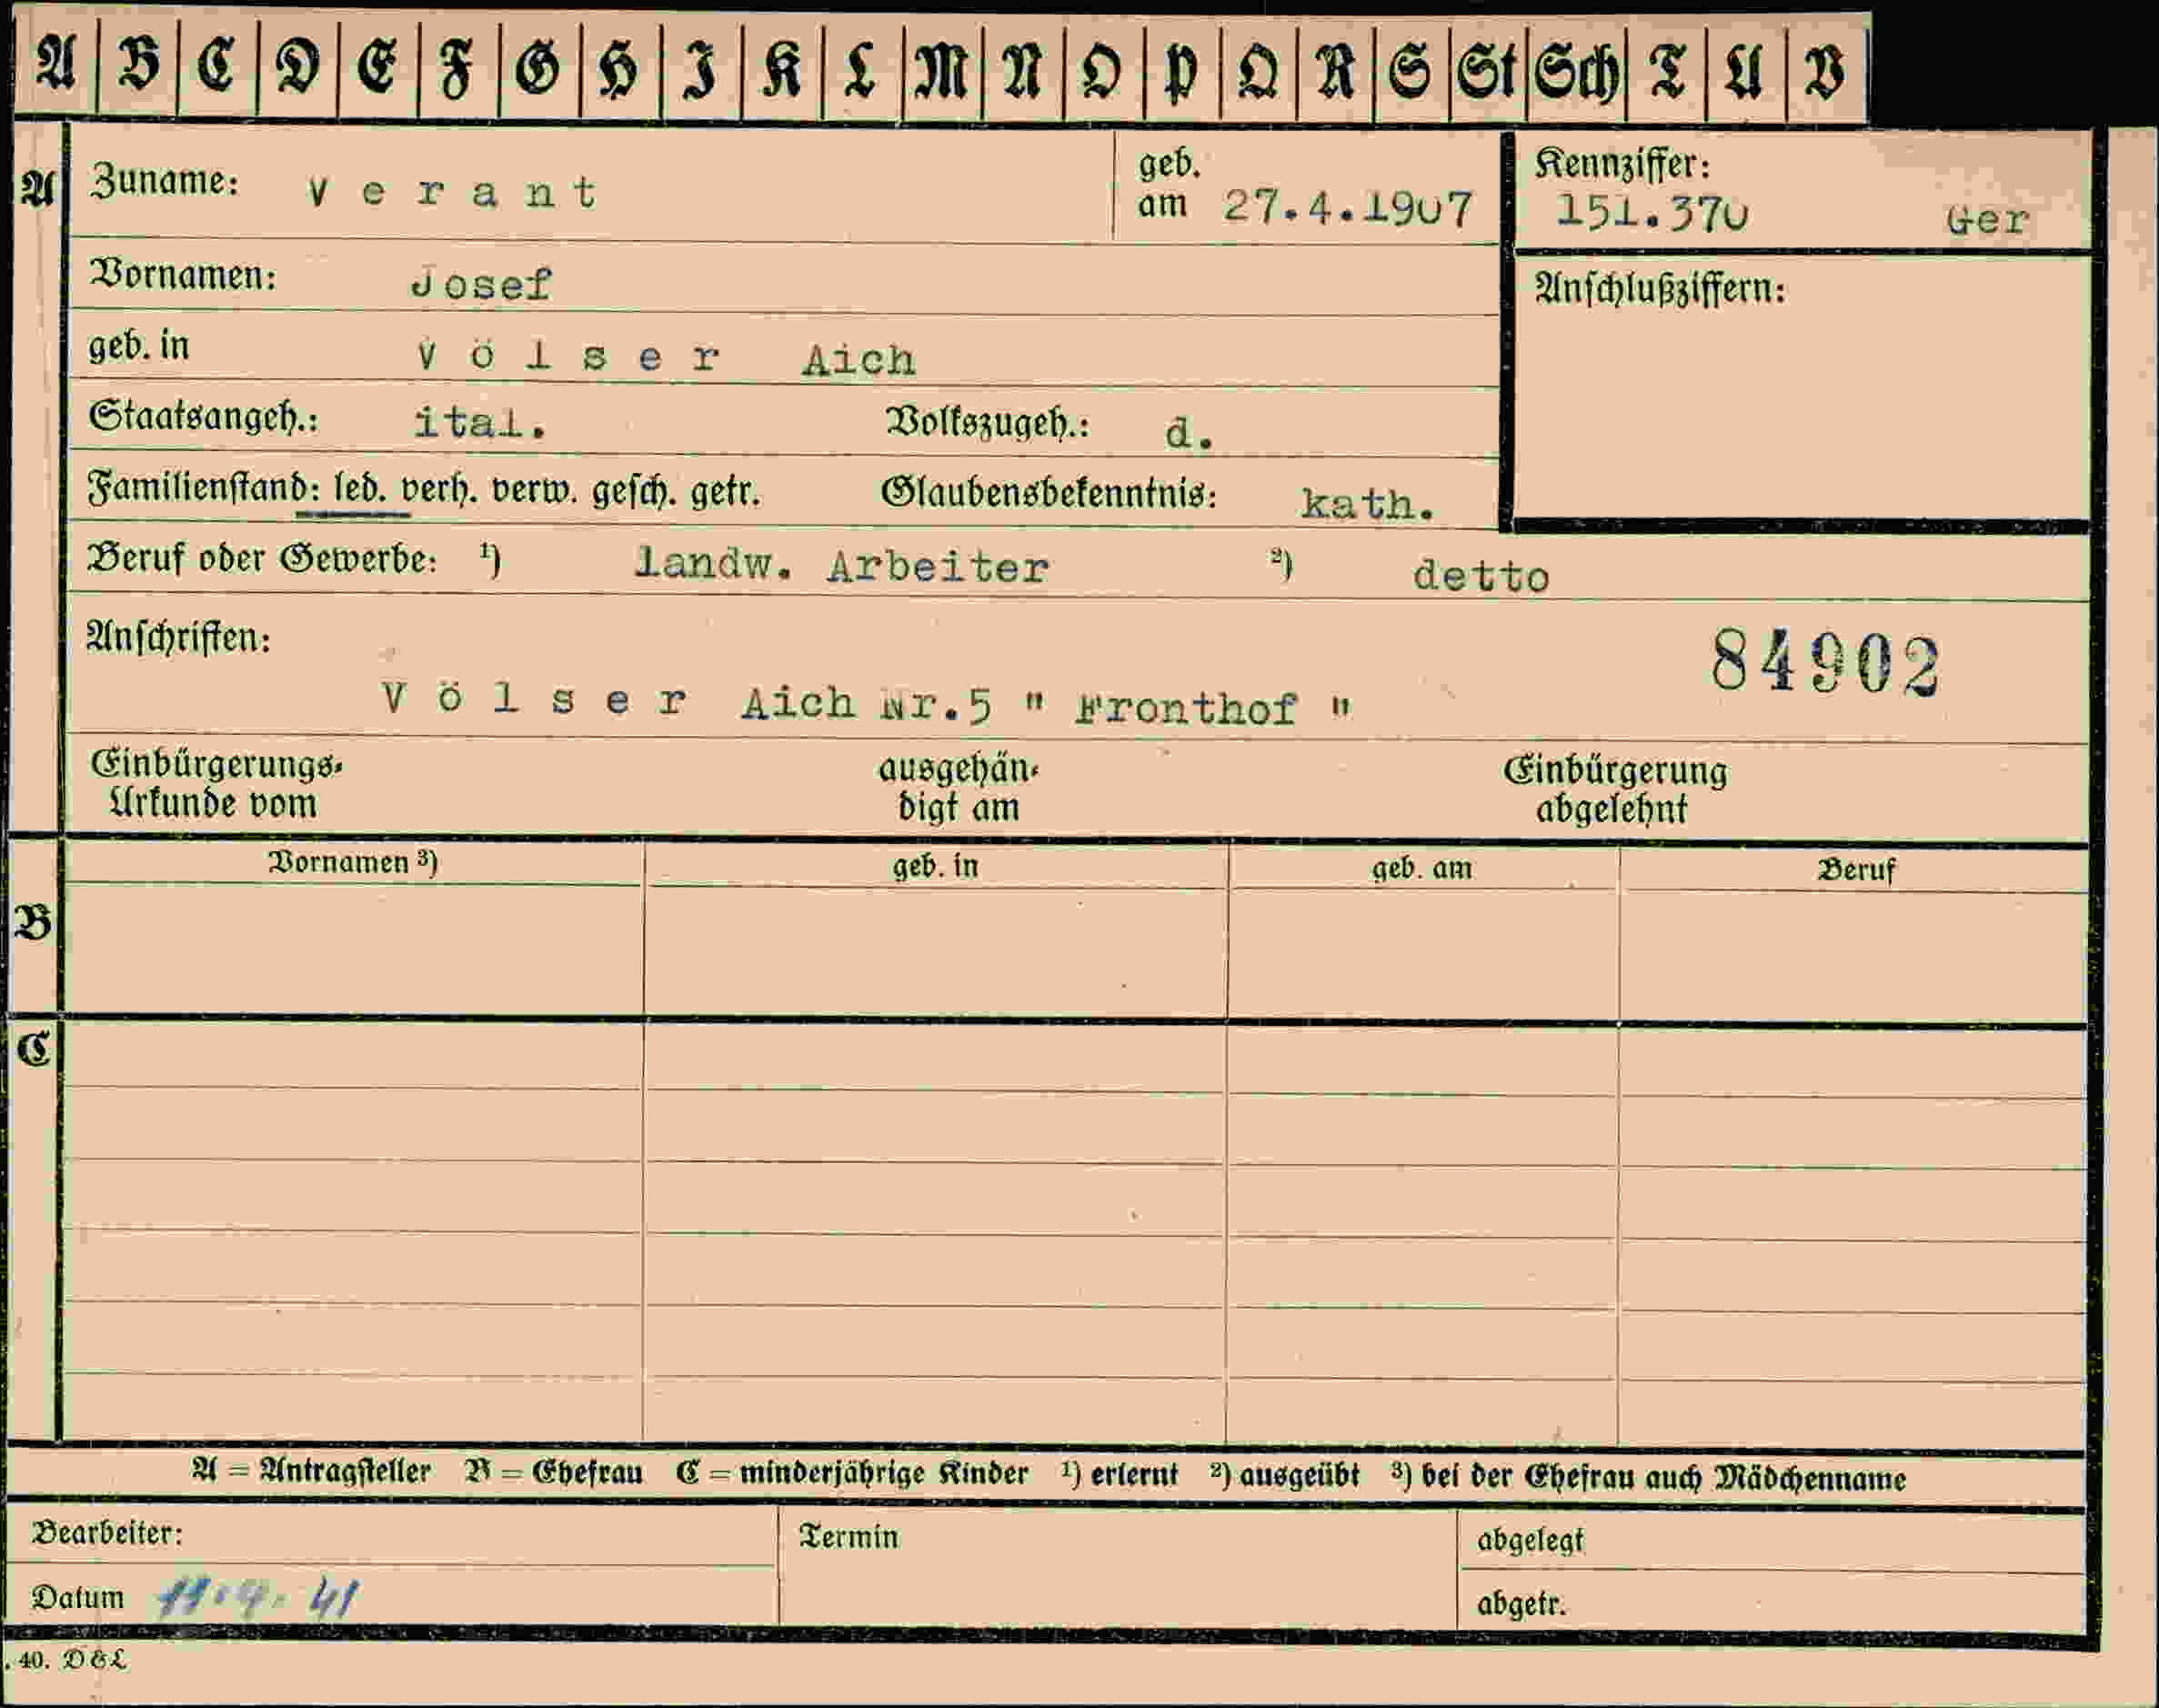 A B C D E F G H I K L M N O P Q R S St Sch T U V
A
Zuname: V e r a n t
geb. am 27.4.1907
Kennziffer: 151.370 Ger
Vornamen: Josef
Anschlußziffern:
geb. in V ö l s e r Aich
Staatsangeh.: ital. Volkszugeh.: d.
Familienstand: led. verh. verw. gesch. getr. Glaubensbekenntnis: kath.
Beruf oder Gewerbe: ¹) landw. Arbeiter ²) detto
Anschriften:
84902
V ö l s e r Aich Nr.5 " Fronthof "
Einbürgerungs- ausgehän- Einbürgerung
Urkunde vom digt am abgelehnt
Vornamen ³) geb. in geb. am Beruf
B
C
A = Antragsteller B = Ehefrau C = minderjährige Kinder ¹) erlernt ²) ausgeübt ³) bei der Ehefrau auch Mädchenname
Bearbeiter: Termin abgelegt
Datum 41 abgetr.
. 40. D & L